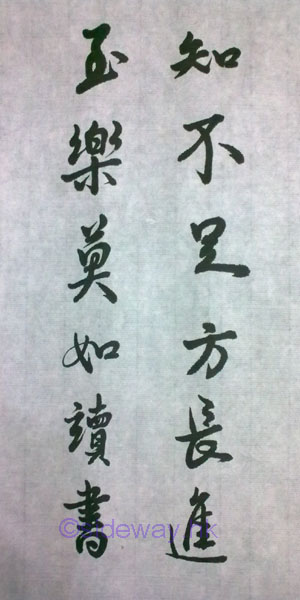 知不足方長進
至樂莫如讀書
©tideway.hk